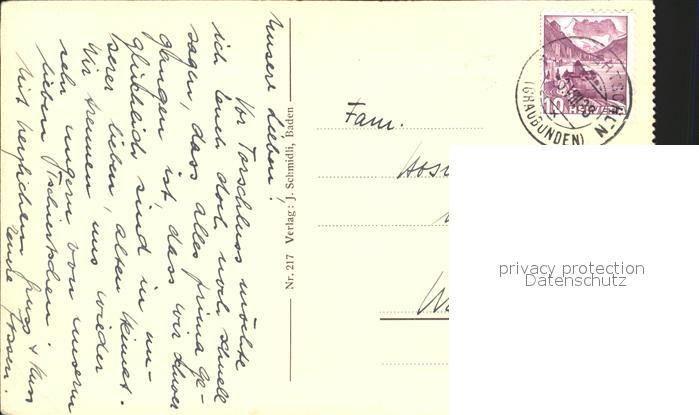 Unsere Lieben!
Vor Torschluss möchte
ich Euch doch noch schnell
sagen, dass alles prima ge-
gangen ist, dass wir schon
glücklich sind in un-
serer lieben, alten Heimat.
Wir trennen uns wieder
sehr ungern von unserm
lieben Tschiertschen!
Mit herzlichem Gruss + Kuss
Eure
Nr. 217 Verlag: J. Schmidli, Baden
Fam.
10 HELVETIA
(GRAUBÜNDEN)
privacy protection
Datenschutz